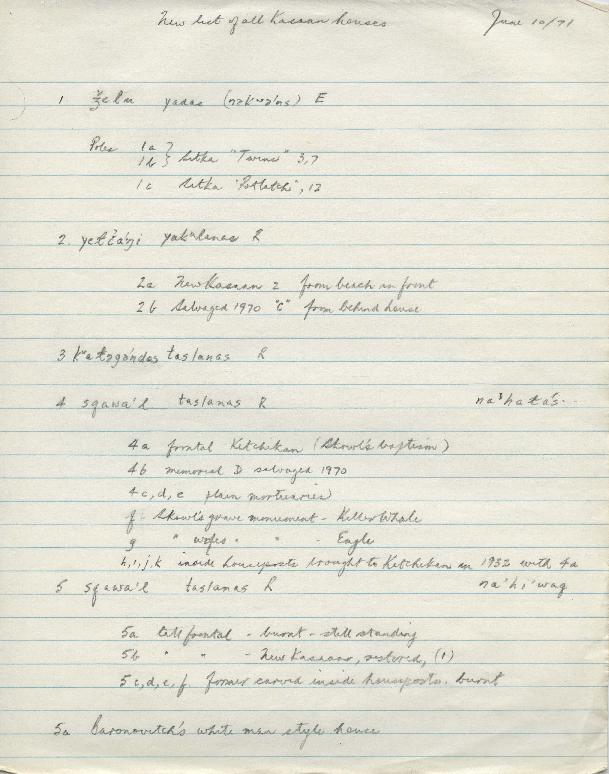 New list of all Kasaan houses June 10/71
1 yadas E
Poles 1a }
1b } Sitka "Twins" 3,7
1c Sitka "Potlatch", 12
2. R
2a New Kasaan 2 from beach in front
2b Salvaged 1970 "C" from behind house
3 taslanas R
4 sqawa'l taslanas R
4a frontal Ketchikan (Skowl's baptism)
4b memorial D salvaged 1970
4c,d,e plain mortuaries
f Skowl's grave monument - Killer Whale
g " wife's " " - Eagle
h,i,j,k inside houseposts brought to Ketchikan in 1932 with 4a
5 sqawa'l taslanas R
5a tall frontal - burnt - still standing
5b " " - New Kasaan, restored, (1)
5c,d,e,f. former carved inside houseposts. burnt
5a Baronovitch's white man style house